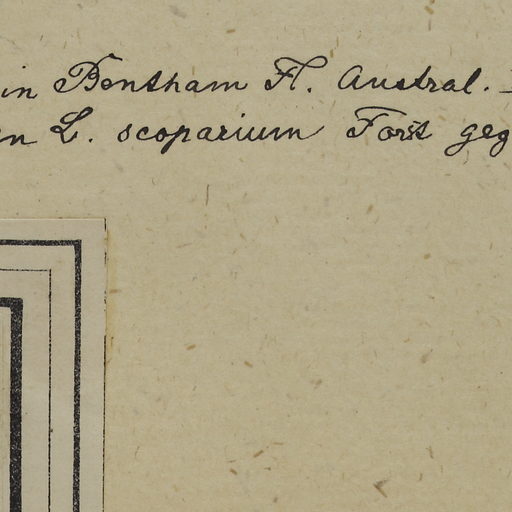 in Bentham Fl. Austral.
L. scoparium Forst